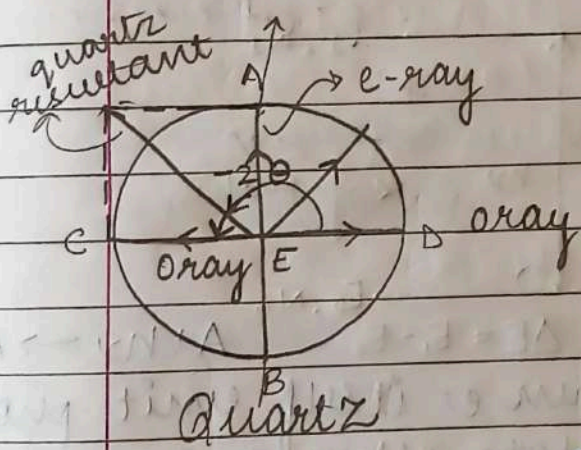 quartz
resultant
A
e-ray
2θ
C
oray
E
D
oray
B
Quartz